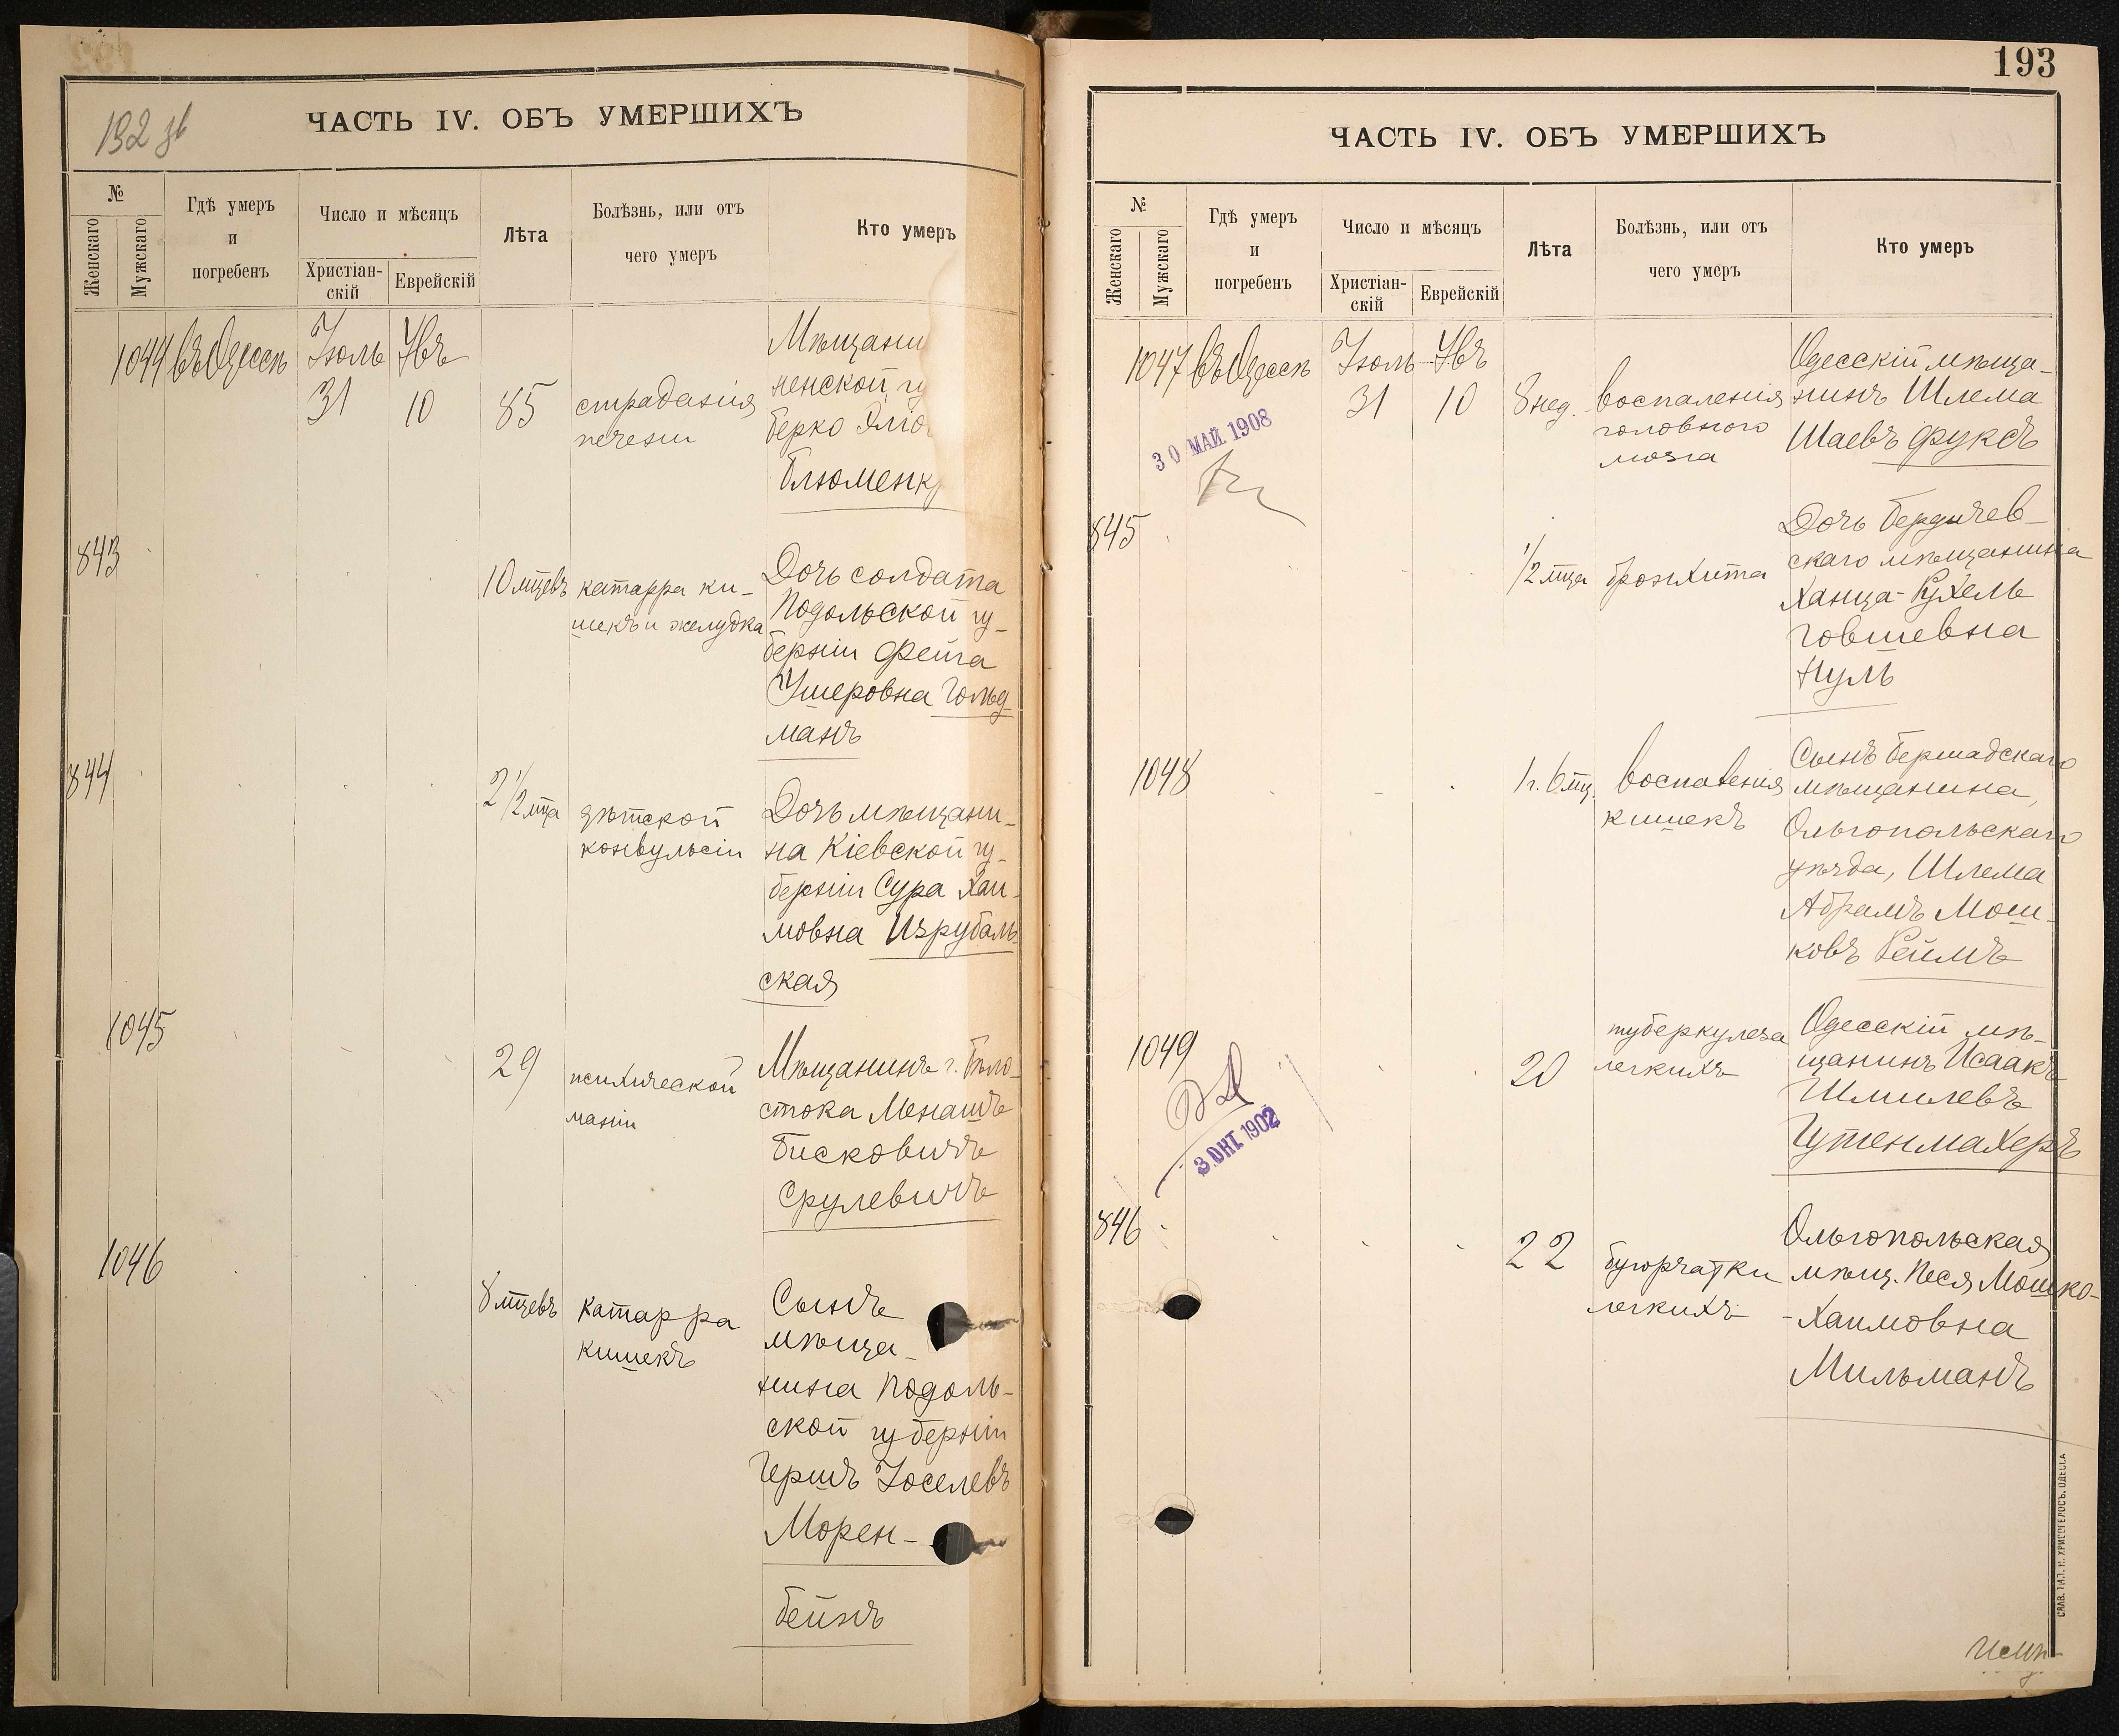 ЧАСТЬ IV. ОБЪ УМЕРШИХЪ
№
Женскаго
Мужскаго
Гдѣ умеръ
и
погребенъ
Число и мѣсяцъ
Христіан-
скій
Еврейскій
Лѣта
Болѣзнь, или отъ
чего умеръ
Кто умеръ
1044 въ Одессѣ Іюль Увъ
31 10 85
страданія
печени
Мѣщани
ненской гу
Берко
Блюменк
843
10 мцевъ
катарра ки-
шекъ и желудка
Дочь солдата
Подольской гу-
берніи Фейга
Ушеровна Гольд-
манъ
844
2 1/2 мца
дѣтской
конвульсіи
Дочь мѣщани-
на Кіевской гу-
берніи Сура Хаи-
мовна Изрубаль-
ская
1045
29
психической
маніи
Мѣщанинъ г. Бѣло-
стока Менашъ
Бисковичъ
Срулевичъ
1046
8 мцевъ
катарра
кишекъ
Сынъ
мѣща-
нина Подоль-
ской губерніи
Гершъ Іоселевъ
Морен-
бейнъ
193
ЧАСТЬ IV. ОБЪ УМЕРШИХЪ
№
Женскаго
Мужскаго
Гдѣ умеръ
и
погребенъ
Число и мѣсяцъ
Христіан-
скій
Еврейскій
Лѣта
Болѣзнь, или отъ
чего умеръ
Кто умеръ
1047 въ Одессѣ Іюль Увъ
31 10 8 нед.
воспаленія
головного
мозга
Одесскій мѣща-
нинъ Шлема
Шаевъ Фуксъ
30 МАЙ 1908
845
1/2 мца
бронхита
Дочь Бердичев-
скаго мѣщанина
Ханца-Рухель
Говшевна
Нуль
1048
1 г. 6 мц.
воспаленія
кишекъ
Сынъ Бершадскаго
мѣщанина,
Ольгопольскаго
уѣзда, Шлема
Абрамъ Мош-
ковъ Реймъ
1049
20
туберкулеза
легкихъ
Одесскій мѣ-
щанинъ Исаакъ
Шмилевъ
Гутенмахеръ
3 ОКТ 1902
846
22
бугорчатки
легкихъ
Ольгопольская
мѣщ. Песя Мошко-
-Хаимовна
Мильманъ
СЛАВ. ТИП. Н. ХРИСОГЕЛОСЪ. ОДЕССА